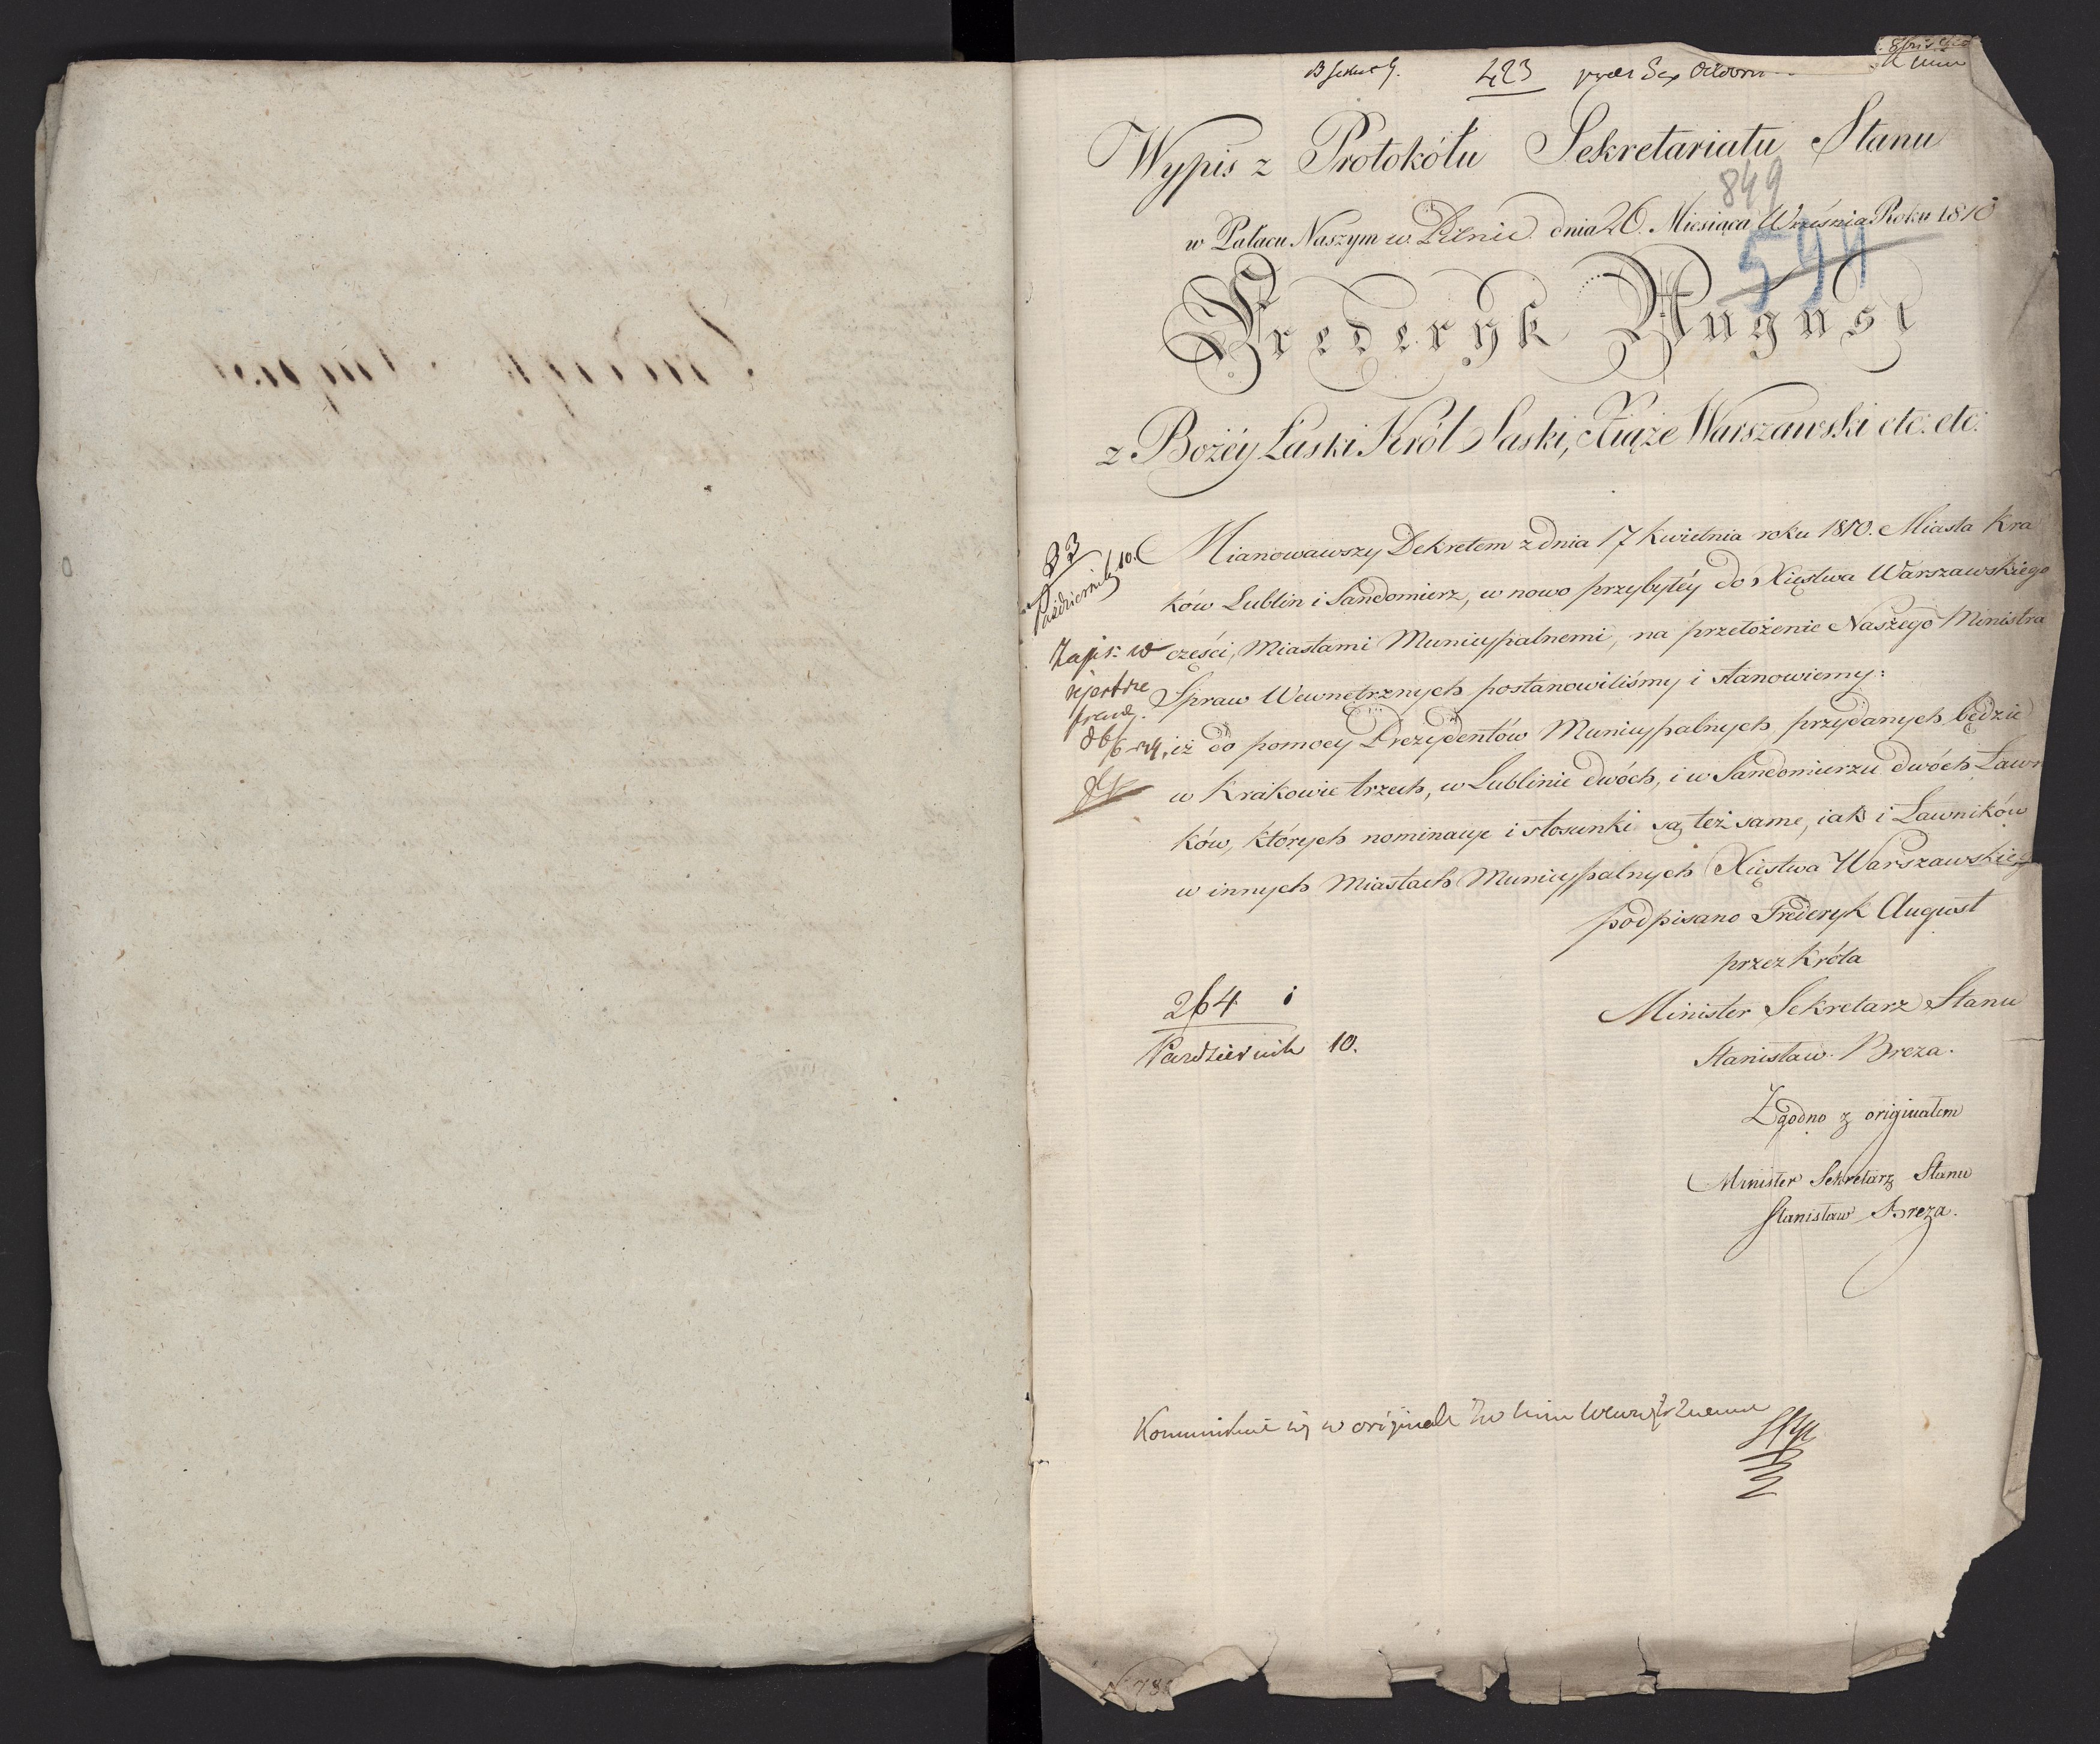 423
Wypis z Protokółu Sekretariatu Stanu
849
w Pałacu Naszym w Pilnic dnia 26. Miesiąca Września Roku 1810
594
Frederyk August
z Bożéy Łaski Król Saski, Xiąże Warszawski etc: etc:
33
Październik 10.
Mianowawszy Dekretem z dnia 17 kwietnia roku 1810. Miasta Kra
ków Lublin i Sandomierz, w nowo przybyłéy do Xięstwa Warszawskiego
Zapis: w
rejestrze
części, Miastami Municypalnemi, na przełożenie Naszego Ministra
Spraw Wewnętrznych postanowiliśmy i stanowiemy:
iż do pomocy Prezydentów Municypalnych przydanych będzie
w Krakowie trzech, w Lublinie dwóch, i w Sandomierzu dwóch Ławn
ków, których nominacye i stosunki są też same, iak i Ławników
w innych Miastach Municypalnych Xięstwa Warszawskieg
podpisano Frederyk August
przez Króla
Minister Sekretarz Stanu
Stanisław Breza.
264
Październik 10.
Zgodno z originałem
Minister Sekretarz Stanu
Stanisław Breza.
w originale